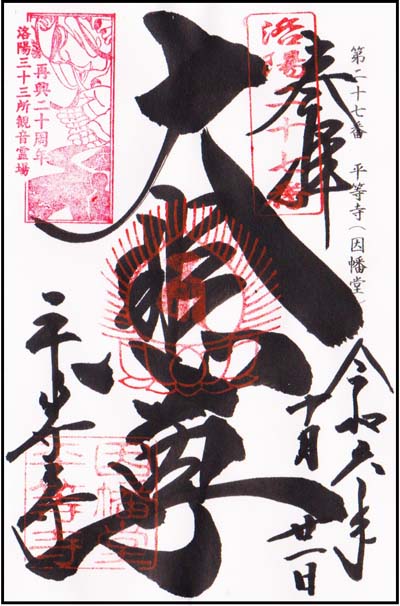 第二十七番 平等寺(因幡堂)
奉拝
洛陽二十七番
令和六年
十月廿一日
大悲尊
平等寺
因幡堂
平等寺
再興二十周年
洛陽三十三所観音霊場